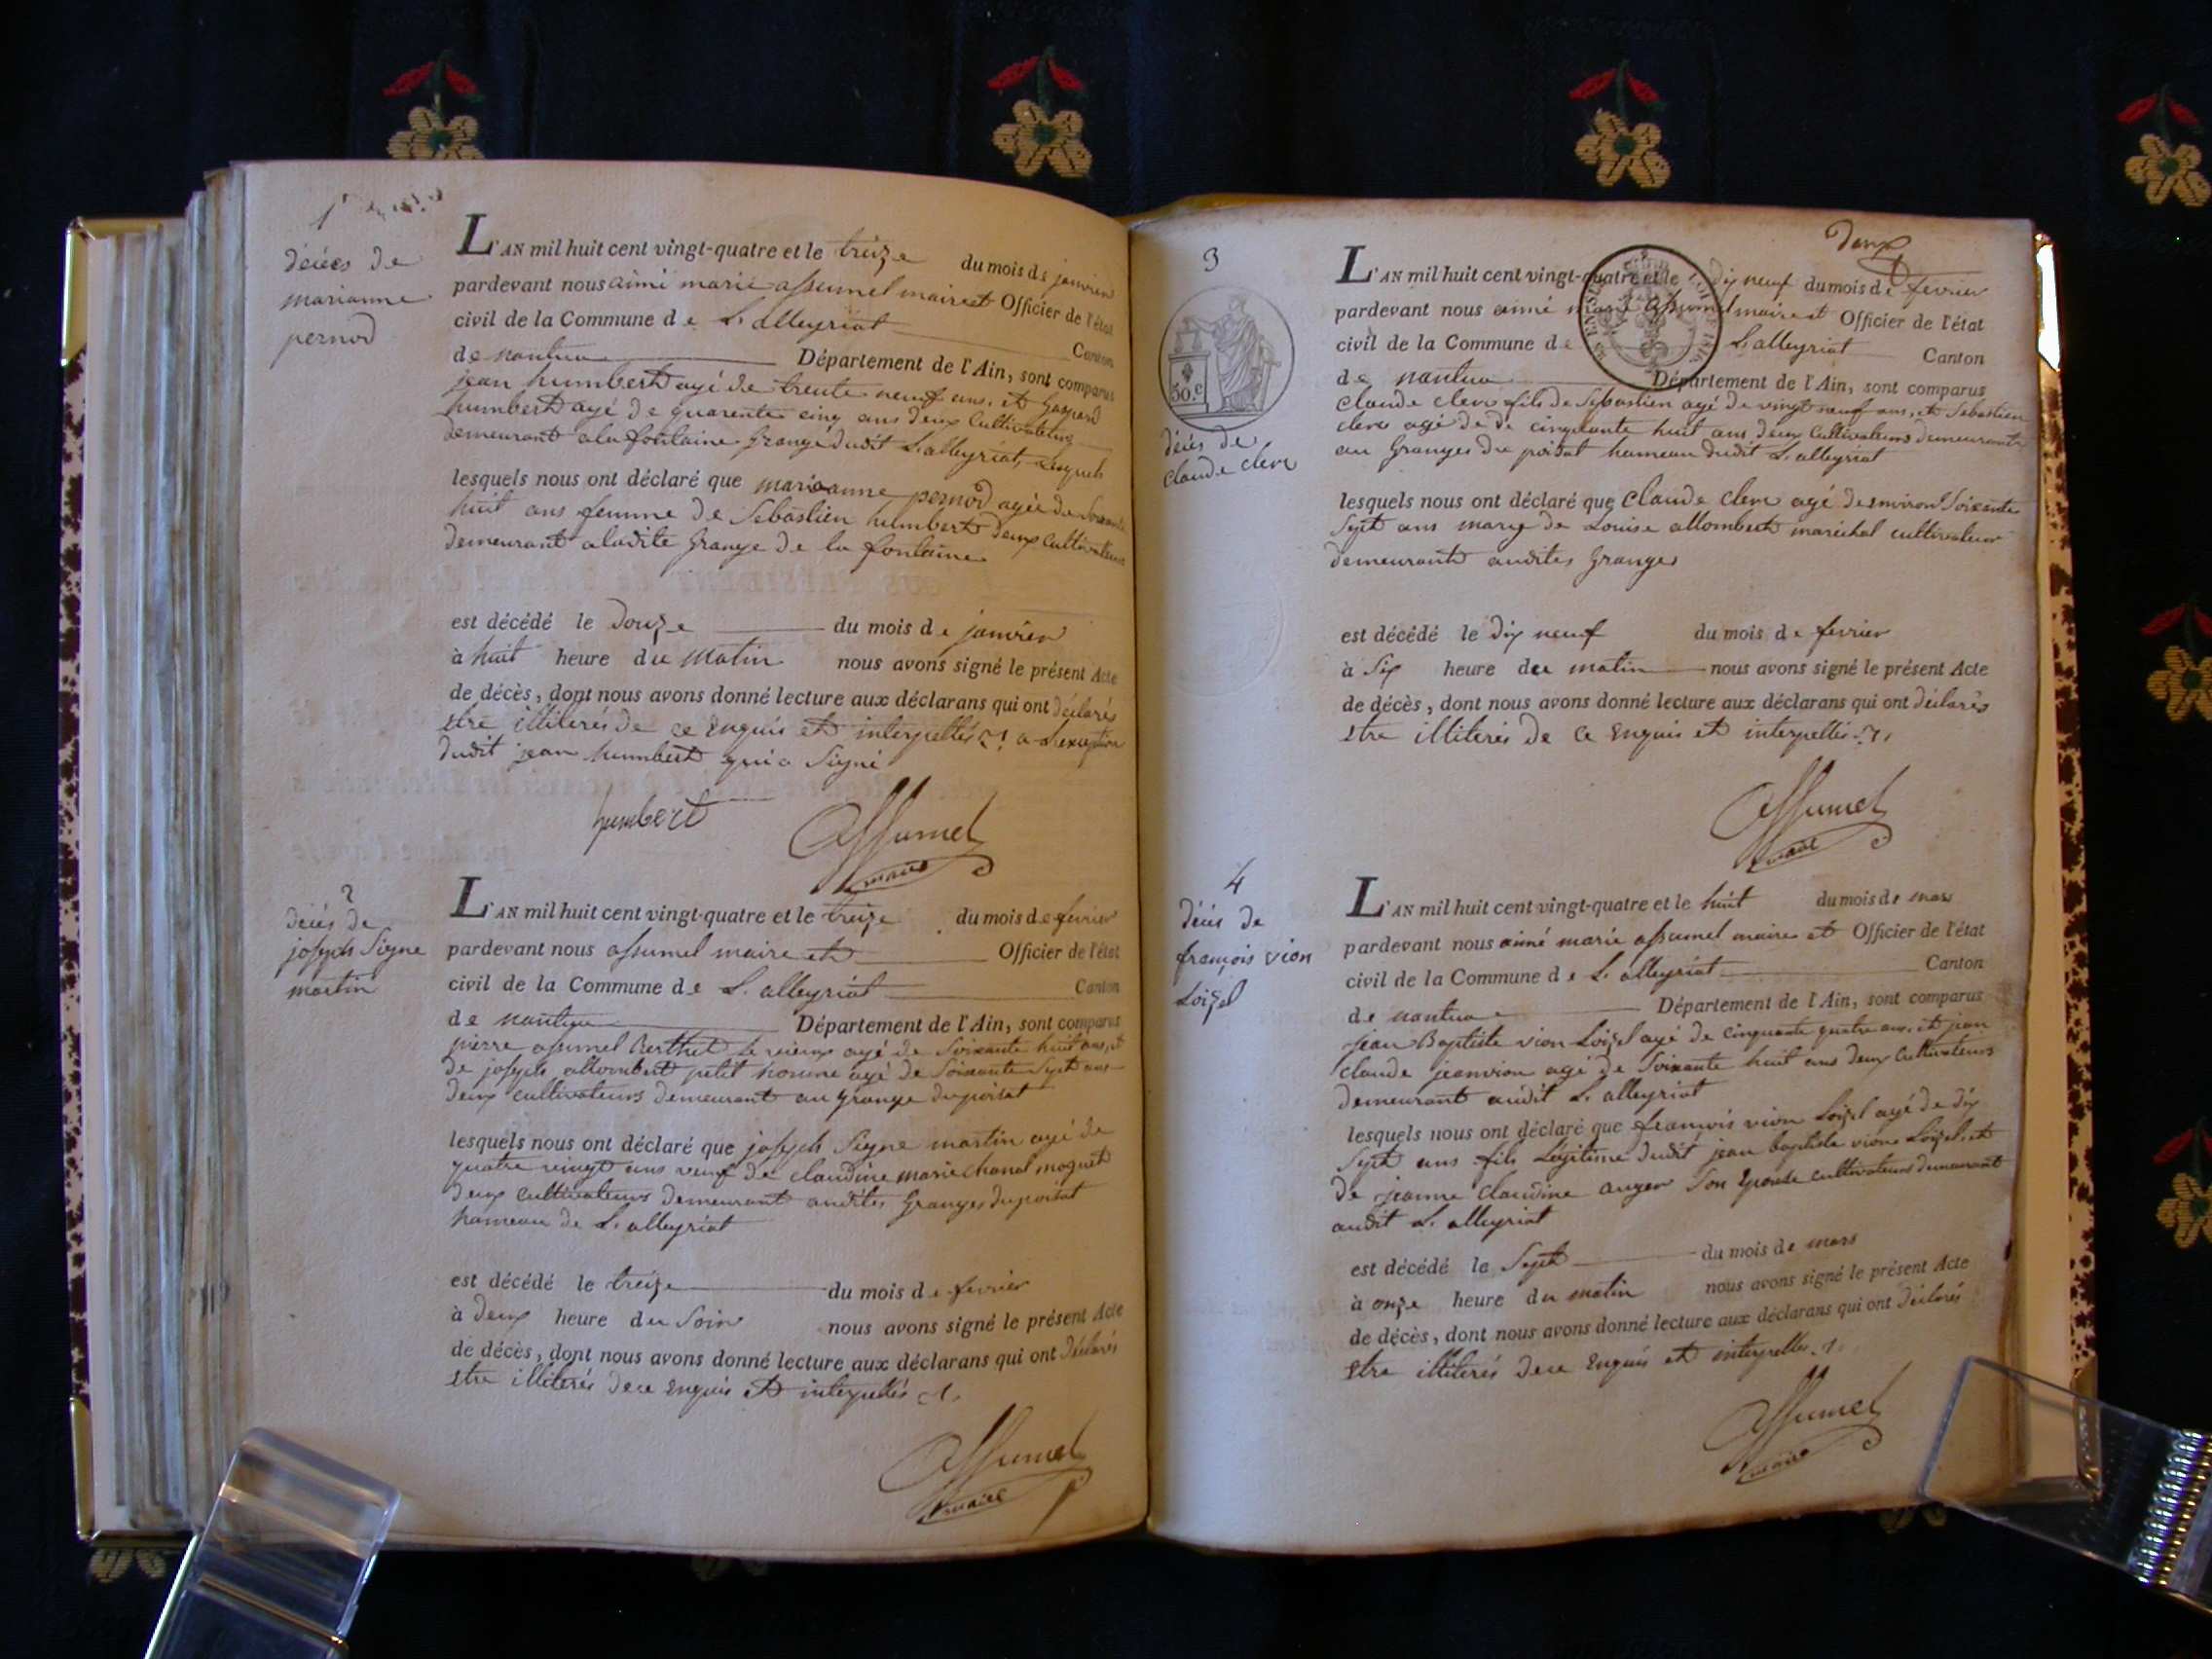 1
décès de
marianne
pernod
L'AN mil huit cent vingt-quatre et le treize du mois de janvier
pardevant nous aimé marie assumel maire et Officier de l'état
civil de la Commune de L. alleyriat Canton
de nantua Département de l'Ain, sont comparus
jean humbert agé de trente neuf ans, et gaspard
humbert agé de quarente cinq ans deux cultivateurs
demeurant a la fontaine grange dudit L. alleyriat, lesquels
lesquels nous ont déclaré que marianne pernod agée de soixante
huit ans femme de Sebastien humbert deux cultivateurs
demeurant a ladite grange de la fontaine
est décédé le douze du mois de janvier
à huit heure du matin nous avons signé le présent Acte
de décès, dont nous avons donné lecture aux déclarans qui ont déclarés
etre illiterés de ce enquis et interpellés a L'exception
dudit jean humbert qui a signé
humbert
Assumel
maire
2
décés de
joseph Signe
martin
L'AN mil huit cent vingt-quatre et le treize du mois de fevrier
pardevant nous assumel maire et Officier de l'état
civil de la Commune de L. alleyriat Canton
de nantua Département de l'Ain, sont comparus
pierre assumel Berthet le vieux agé de soixante huit ans, et
de joseph allombert petit homme agé de soixante sept ans
deux cultivateurs demeurant au grange du poisat
lesquels nous ont déclaré que joseph Signe martin agé de
quatre vingt ans veuf de claudine marie chanal moguet
deux cultivateurs demeurant audites Granges du poisat
hameau de L. alleyriat
est décédé le treize du mois de fevrier
à deux heure du soir nous avons signé le présent Acte
de décès, dont nous avons donné lecture aux déclarans qui ont déclarés
etre illiterés de ce enquis et interpellés
Assumel
maire
deux
3
50.c
décés de
claude clerc
L'AN mil huit cent vingt-quatre et le dix neuf du mois de fevrier
pardevant nous aimé marie assumel maire et Officier de l'état
civil de la Commune de L. alleyriat Canton
de nantua Département de l'Ain, sont comparus
claude clerc fils de Sebastien agé de vingt neuf ans, et Sebastien
clerc agé de de cinquante huit ans deux cultivateurs demeurant
au Granges du poisat hameau dudit L. alleyriat
lesquels nous ont déclaré que claude clerc agé de environ soixante
sept ans marye de Louise allombert marechal cultivateur
demeurant audites granges
est décédé le dix neuf du mois de fevrier
à six heure du matin nous avons signé le présent Acte
de décès, dont nous avons donné lecture aux déclarans qui ont déclarés
etre illiterés de ce enquis et interpellés
Assumel
maire
4
décés de
françois vion
Loizel
L'AN mil huit cent vingt-quatre et le huit du mois de mars
pardevant nous aimé marie assumel maire et Officier de l'état
civil de la Commune de L. alleyriat Canton
de nantua Département de l'Ain, sont comparus
jean Baptiste vion Loizel agé de cinquante quatre ans, et jean
claude jeanvion agé de soixante huit ans deux cultivateurs
demeurant audit L. alleyriat
lesquels nous ont déclaré que françois vion Loizel agé de dix
sept ans fils Légitime dudit jean baptiste vion Loizel, et
de jeanne claudine auger son Epouse cultivateurs demeurant
audit L. alleyriat
est décédé le sept du mois de mars
à onze heure du matin nous avons signé le présent Acte
de décès, dont nous avons donné lecture aux déclarans qui ont déclarés
etre illiterés de ce enquis et interpellés
Assumel
maire